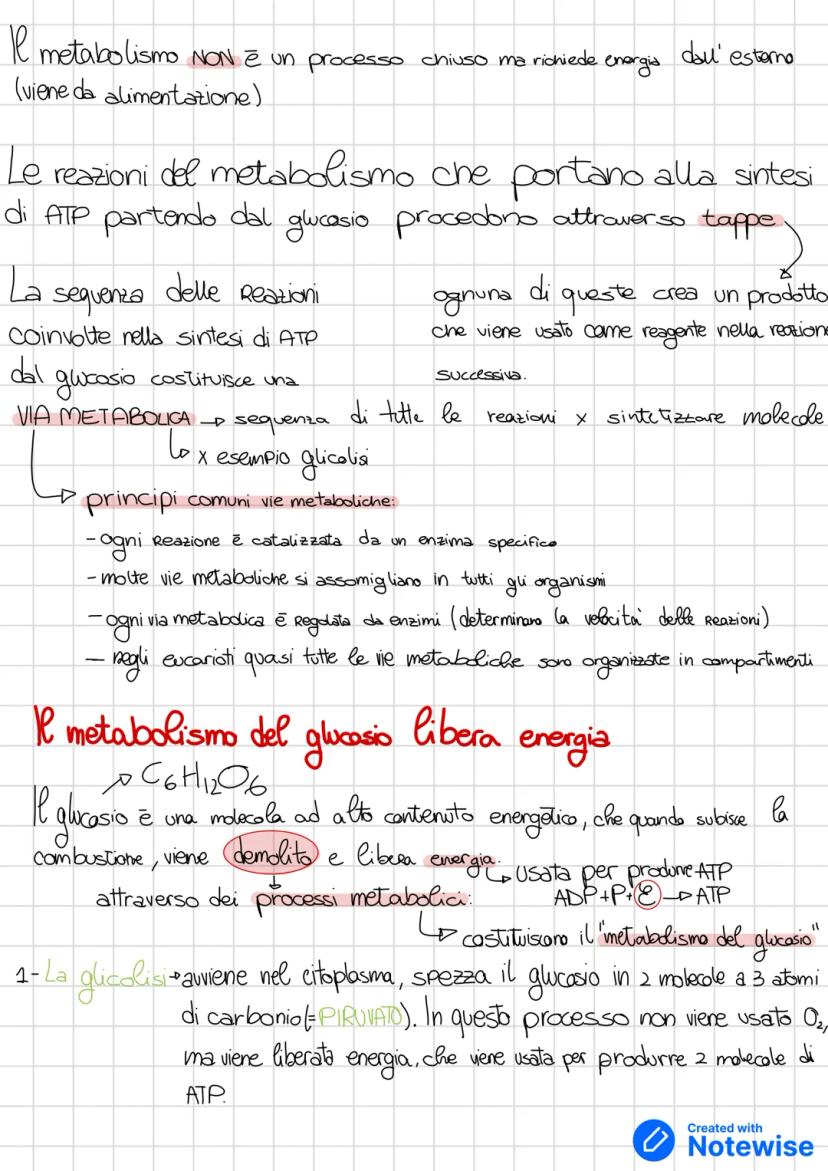 Il metabolismo NON è un processo chiuso ma richiede energia dall'esterno
(viene da alimentazione)
Le reazioni del metabolismo che portano alla sintesi
di ATP partendo dal glucosio procedono attraverso tappe
La sequenza delle Reazioni
coinvolte nella sintesi di ATP
dal glucosio costituisce una
ognuna di queste crea un prodotto
che viene usato come reagente nella reazione
successiva.
VIA METABOLICA → sequenza di tutte le reazioni x sintetizzare molecole
↳ x esempio glicolisi
→ principi comuni vie metaboliche:
- ogni Reazione è catalizzata da un enzima specifico
- molte vie metaboliche si assomigliano in tutti gli organismi
- ogni via metabolica è Regolata da enzimi (determinano la velocità delle Reazioni)
- negli eucarioti quasi tutte le vie metaboliche sono organizzate in compartimenti
Il metabolismo del glucosio libera energia
→ C6H12O6
Il glucosio è una molecola ad alto contenuto energetico, che quando subisce la
combustione, viene demolito e libera energia.
↳ usata per produrre ATP
attraverso dei processi metabolici:
ADP+P+E → ATP
↳ costituiscono il "metabolismo del glucosio"
1- La glicolisi → avviene nel citoplasma, spezza il glucosio in 2 molecole a 3 atomi
di carbonio (= PIRUVATO). In questo processo non viene usato O2,
ma viene liberata energia, che viene usata per produrre 2 molecole di
ATP.
Created with
Notewise